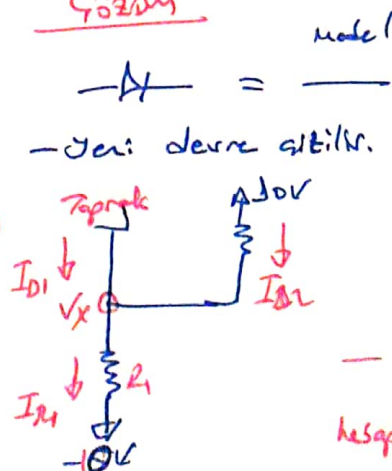 Çözüm
model
=
- Yeni devre çizilir.
Toprak
10V
I_D1
V_X
I_D2
I_R1
R_1
-10V
hesap